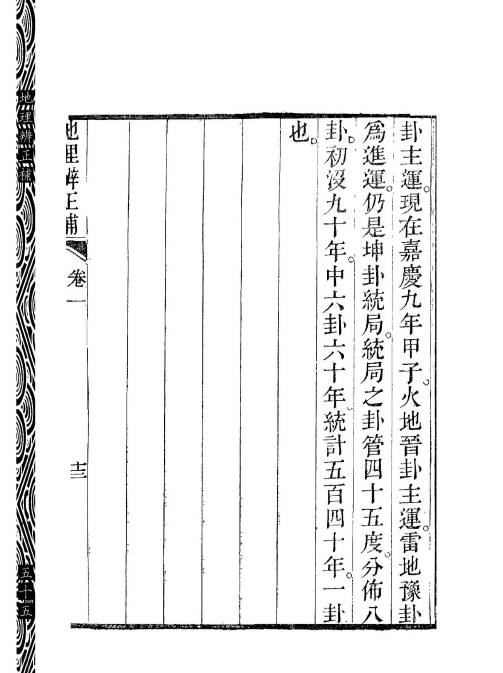 卦主運。現在嘉慶九年甲子。火地晉卦主運。雷地豫卦
爲進運。仍是坤卦統局。統局之卦管四十五度。分佈八
卦。初沒九十年。中六卦六十年。統計五百四十年。一卦
也。
地理辨正補
卷一
十三
地理辨正補
五十五